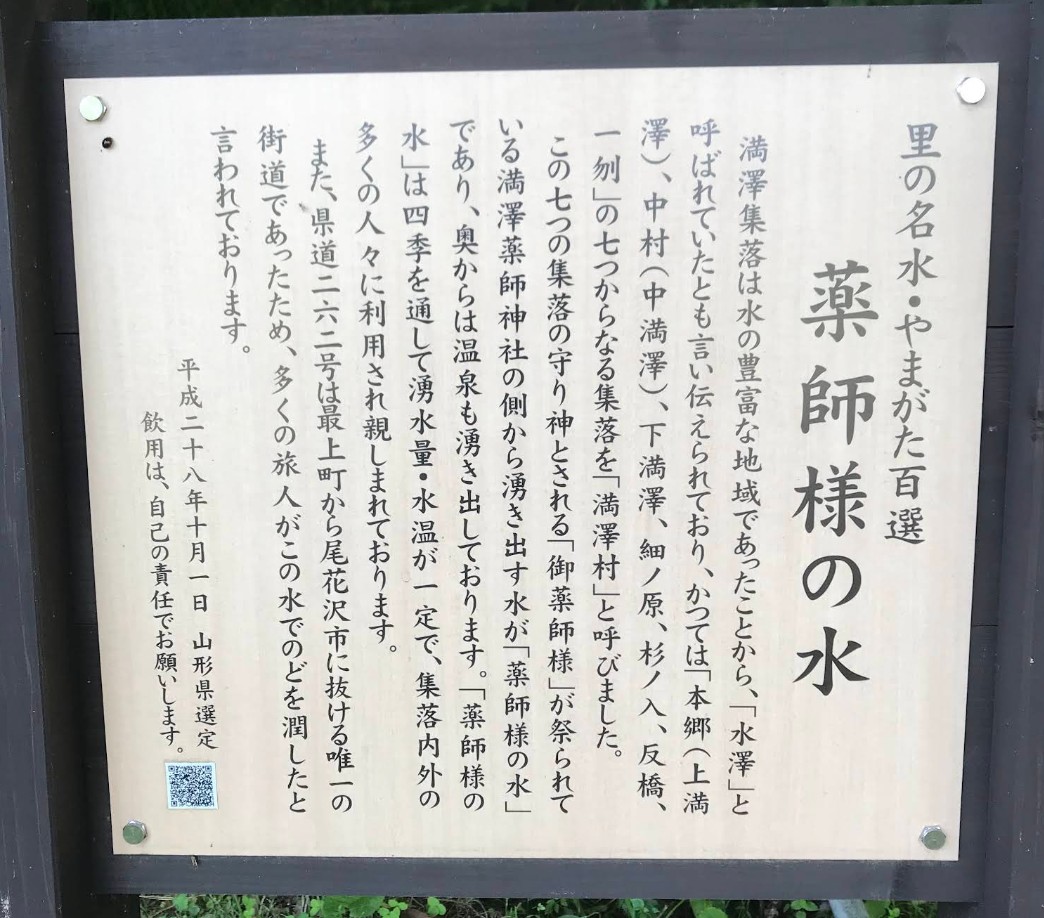 里の名水・やまがた百選
薬師様の水
満澤集落は水の豊富な地域であったことから、「水澤」と
呼ばれていたとも言い伝えられており、かつては「本郷(上満
澤)、中村(中満澤)、下満澤、細ノ原、杉ノ入、反橋、
一刎」の七つからなる集落を「満澤村」と呼びました。
この七つの集落の守り神とされる「御薬師様」が祭られて
いる満澤薬師神社の側から湧き出す水が「薬師様の水」
であり、奥からは温泉も湧き出しております。「薬師様の
水」は四季を通して湧水量・水温が一定で、集落内外の
多くの人々に利用され親しまれております。
また、県道二六二号は最上町から尾花沢市に抜ける唯一の
街道であったため、多くの旅人がこの水でのどを潤したと
言われております。
平成二十八年十月一日 山形県選定
飲用は、自己の責任でお願いします。